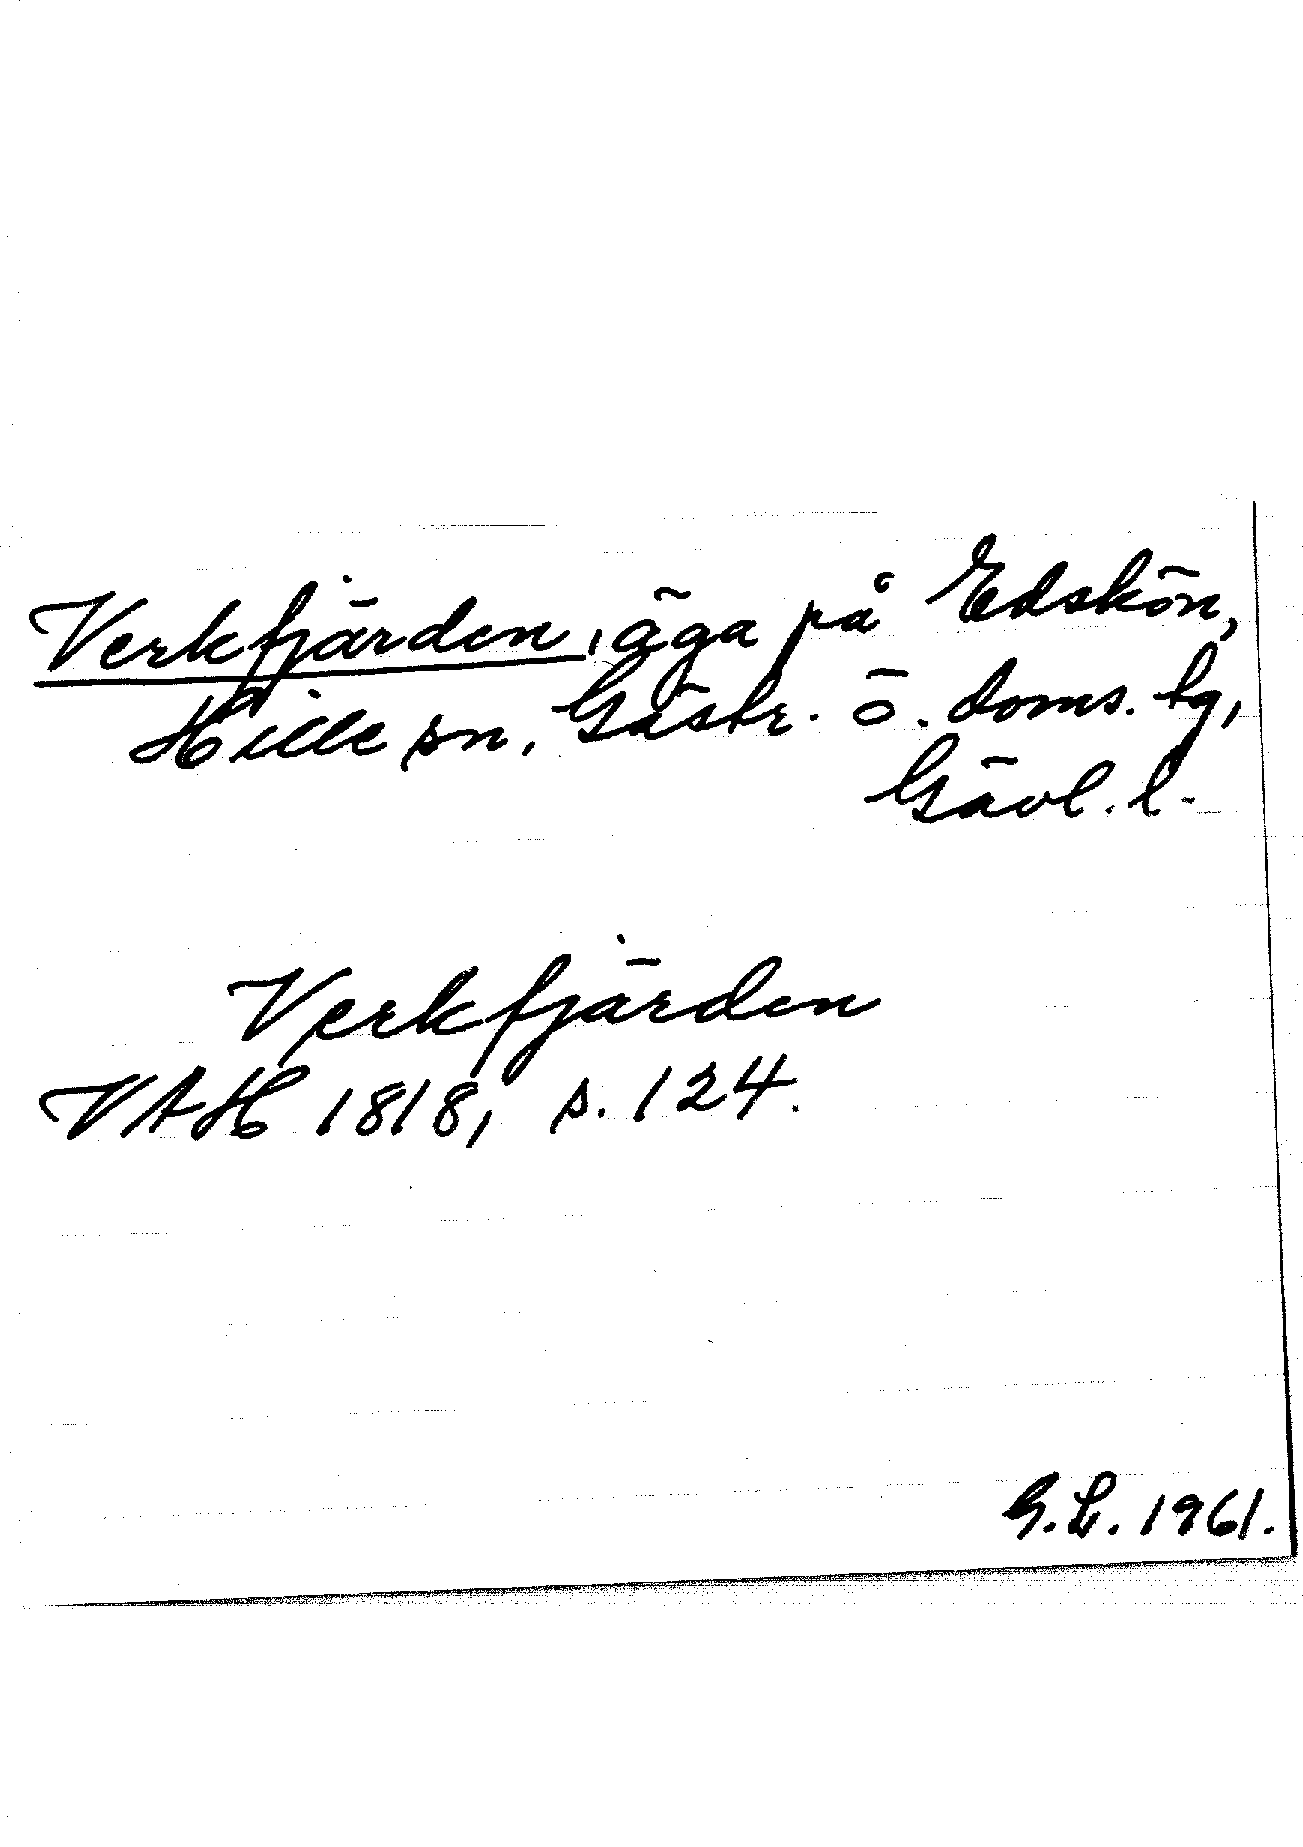 Verkfjärden, äga på Edskön,
Hille sn, Gästr. ö. doms. tg,
Gävl. l.
Verkfjärden
VAH 1818, s. 124.
G.L. 1961.